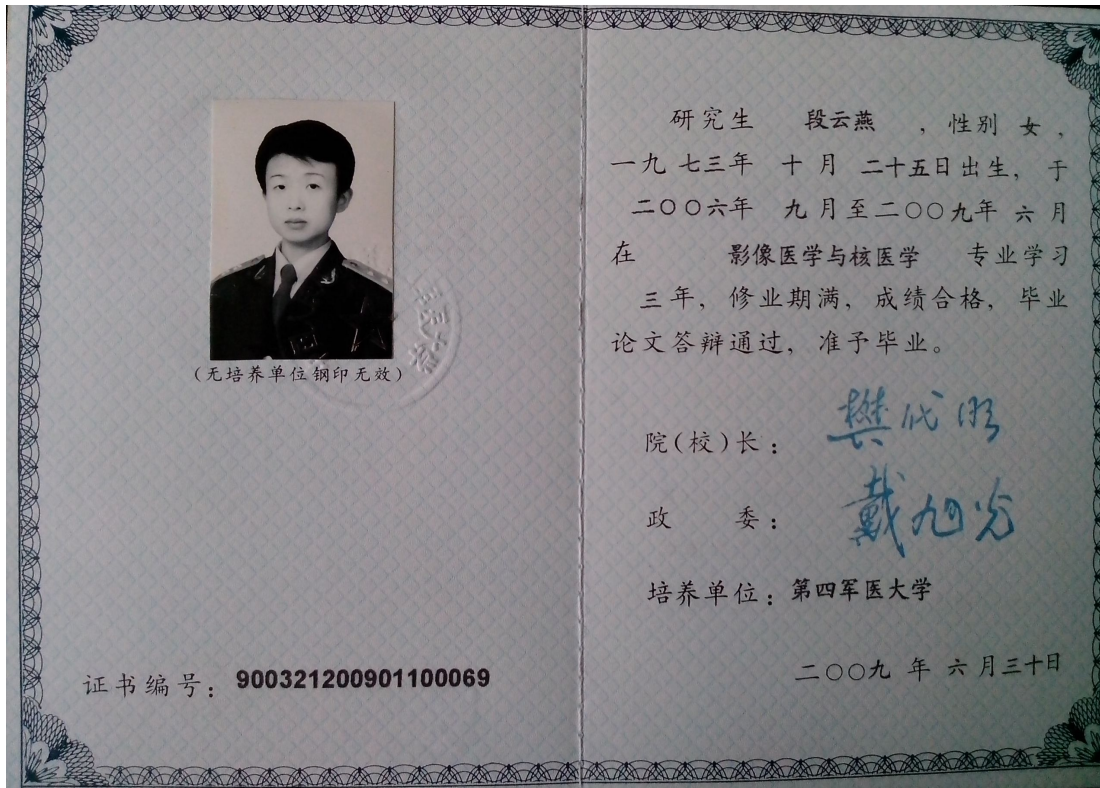 (无培养单位钢印无效)
证书编号：900321200901100069
研究生 段云燕 ，性别 女，
一九七三年 十月 二十五日出生，于
二〇〇六年 九月至二〇〇九年 六月
在 影像医学与核医学 专业学习
三年，修业期满，成绩合格，毕业
论文答辩通过，准予毕业。
院(校)长：樊代明
政 委：戴旭光
培养单位：第四军医大学
二〇〇九 年 六 月三十日